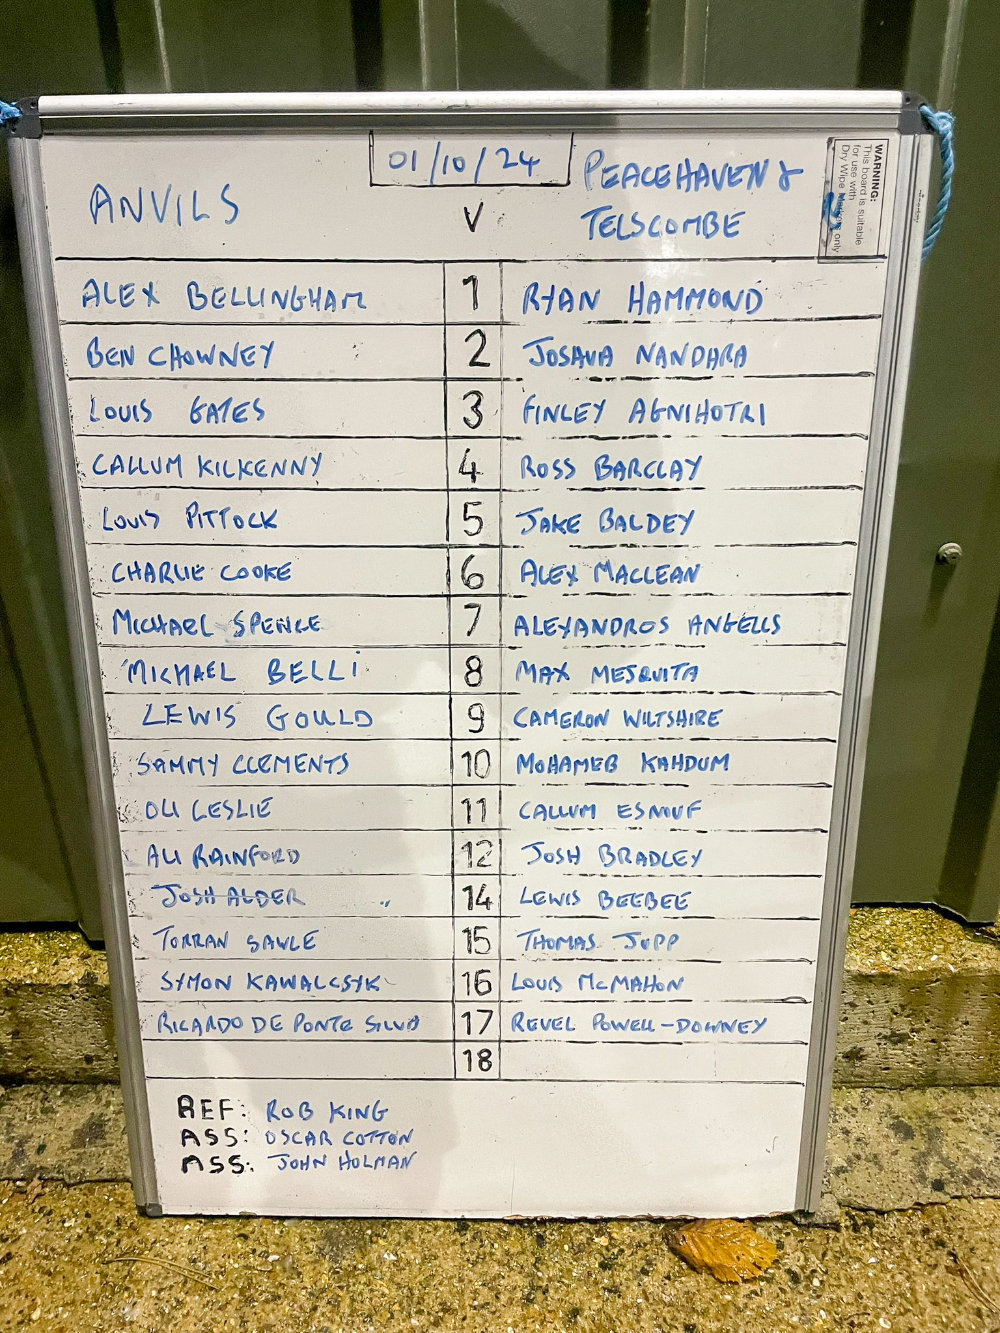 01/10/24
ANVILS V PEACEHAVEN &
TELSCOMBE
WARNING:
This board is suitable
for use with
Dry Wipe Markers only
ALEX BELLINGHAM 1 RYAN HAMMOND
BEN CHOWNEY 2 JOSHUA NANDHRA
LOUIS GATES 3 FINLEY AGNIHOTRI
CALLUM KILKENNY 4 ROSS BARCLAY
LOUIS PITTOCK 5 JAKE BALDEY
CHARLIE COOKE 6 ALEX MACLEAN
MICHAEL SPENCE 7 ALEXANDROS ANGELLS
MICHAEL BELLI 8 MAX MESQUITA
LEWIS GOULD 9 CAMERON WILTSHIRE
SAMMY CLEMENTS 10 MOHAMEB KAHDUM
OLI LESLIE 11 CALLUM ESNOUF
ALI RAINFORD 12 JOSH BRADLEY
JOSH ALDER 14 LEWIS BEEBEE
TORRAN SAWLE 15 THOMAS JUPP
SYMON KAWALCSYK 16 LOUIS McMAHON
RICARDO DE PONTE SILVA 17 REVEL POWELL-DOWNEY
18
REF: ROB KING
ASS: OSCAR COTTON
ASS: JOHN HOLMAN